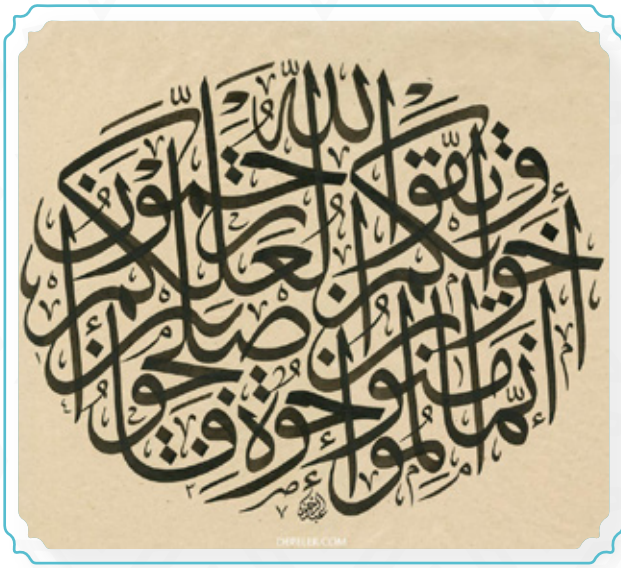 إنما المؤمنون إخوة فأصلحوا
بين أخويكم
واتقوا الله لعلكم ترحمون